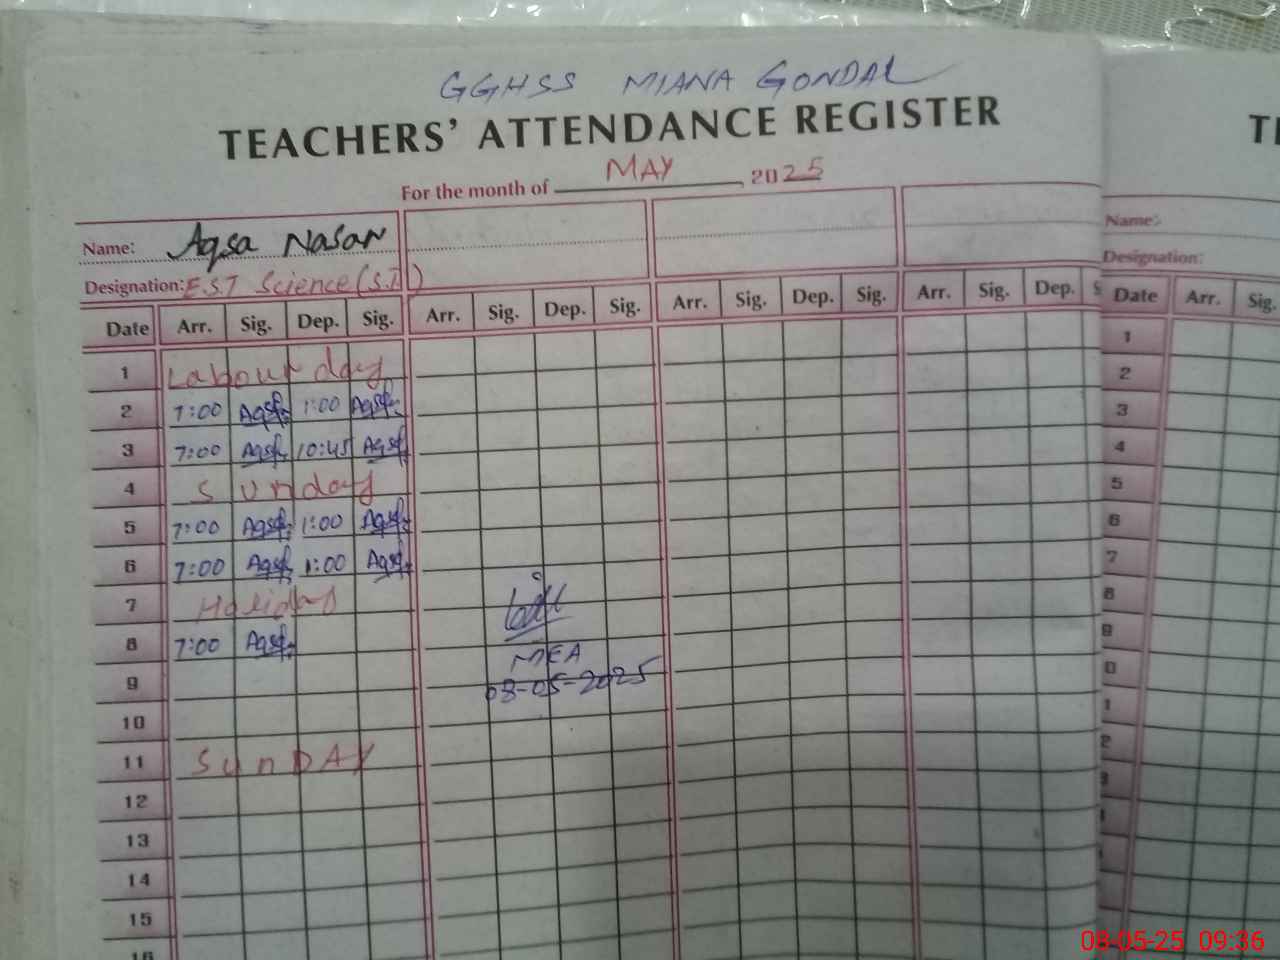 GGHSS MIANA GONDAL
TEACHERS' ATTENDANCE REGISTER
For the month of MAY, 2025
Name: Aqsa Nasar
Designation: E.S.T Science (S.T.I)
Date Arr. Sig. Dep. Sig. Arr. Sig. Dep. Sig. Arr. Sig. Dep. Sig. Arr. Sig. Dep. S
1 Labour day
2 7:00 Aqsa 1:00 Aqsa
3 7:00 Aqsa 10:45 Aqsa
4 Sunday
5 7:00 Aqsa 1:00 Aqsa
6 7:00 Aqsa 1:00 Aqsa
7 Holiday
8 7:00 Aqsa
MEA
9 08-05-2025
10
11 SunDAY
12
13
14
15
16
Name:-
Designation:
Date Arr. Sig.
1
2
3
4
5
6
7
8
9
0
1
2
3
08-05-25 09:36